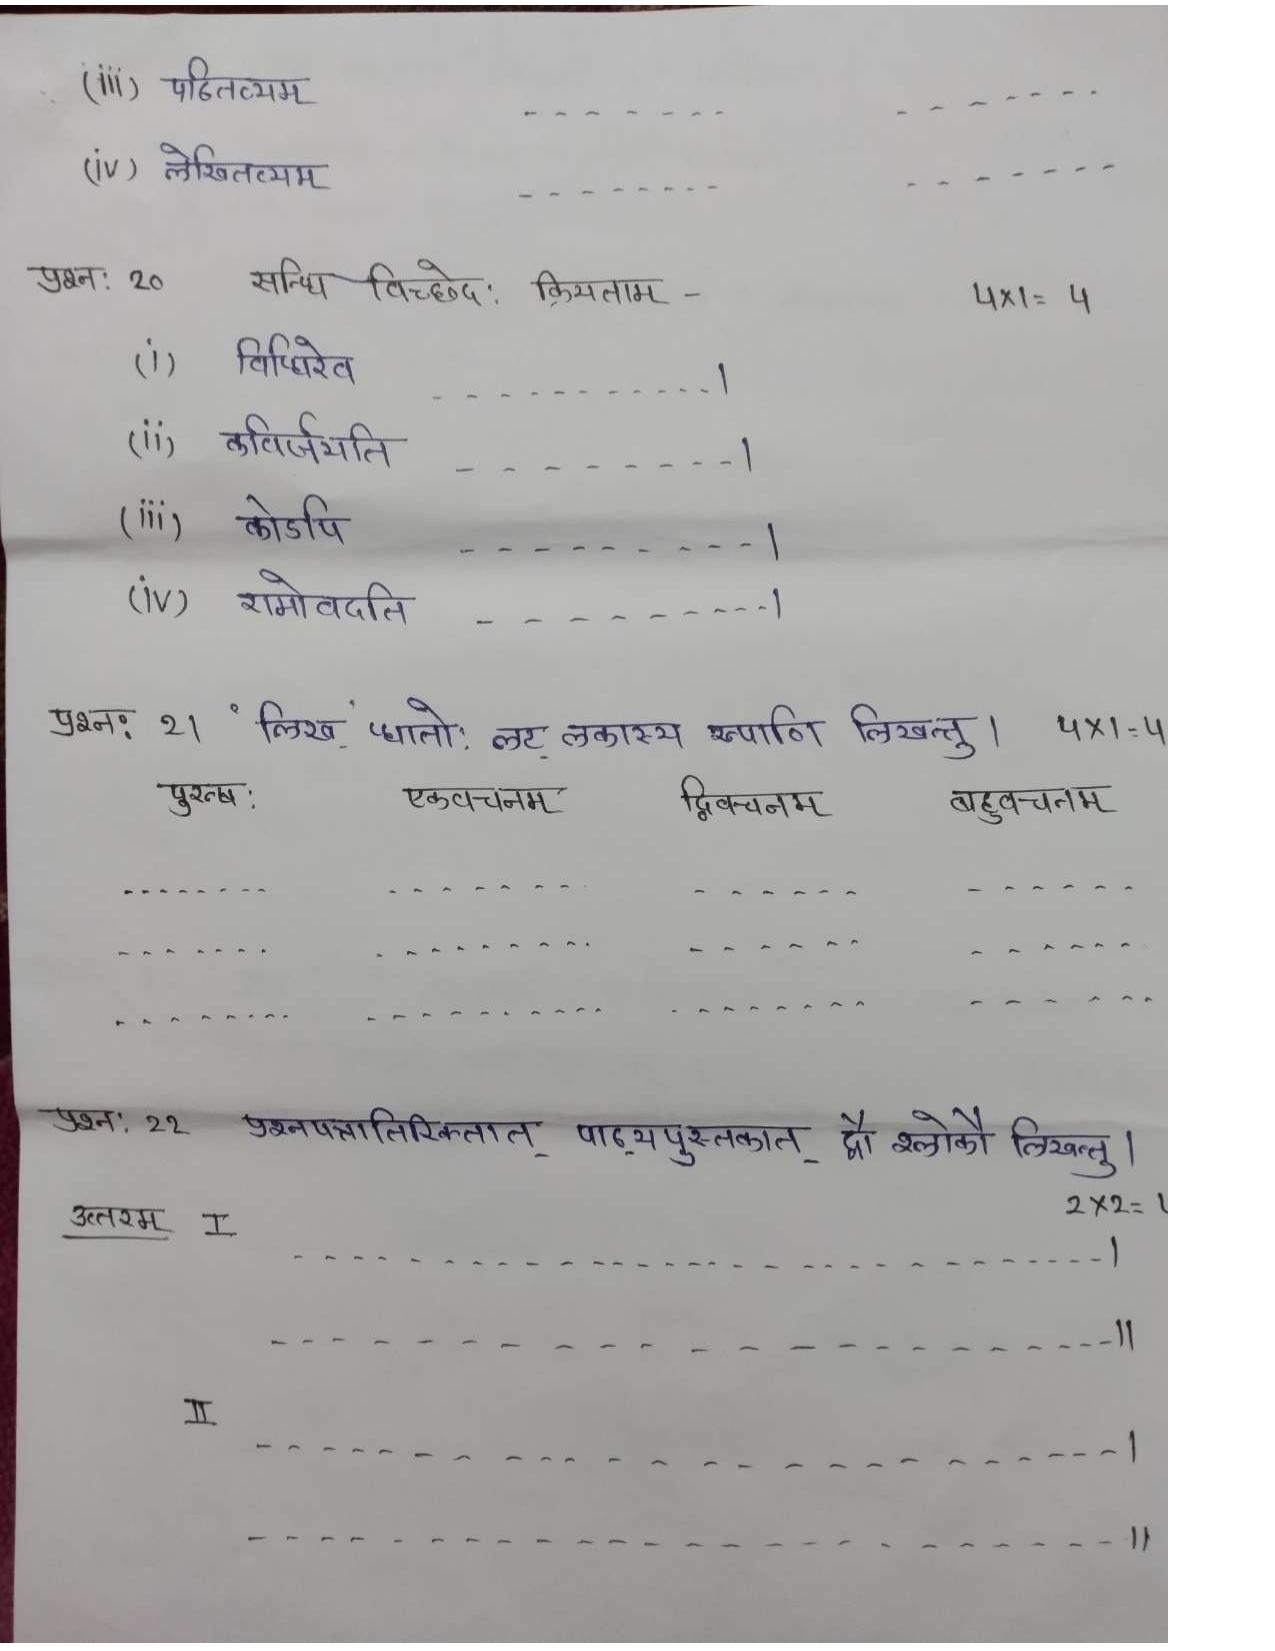 (iii) पठितव्यम् - - - - - - - - - - - - - -
(iv) लेखितव्यम् - - - - - - - - - - - - - - -
प्रश्न: 20 सन्धि विच्छेद: क्रियताम - 4×1= 4
(i) विधिरेव - - - - - - - - - - - ।
(ii) कविर्जयति - - - - - - - - - ।
(iii) कोऽपि - - - - - - - - - ।
(iv) रामोवदति - - - - - - - - - - ।
प्रश्न: 21 'लिख्' धातो: लट् लकास्य रूपाणि लिखन्तु । 4×1=4
पुरुष: एकवचनम् द्विवचनम् बहुवचनम्
- - - - - - - - - - - - - - - - - - - - - - - - - - -
- - - - - - - - - - - - - - - - - - - - - - - - - - -
- - - - - - - - - - - - - - - - - - - - - - - - - - - - -
प्रश्न: 22 प्रश्नपत्रातिरिक्तात् पाठ्यपुस्तकात् द्वौ श्लोकौ लिखन्तु ।
2×2=
उत्तरम् I - - - - - - - - - - - - - - - - - - - - - - - - ।
- - - - - - - - - - - - - - - - - - - - - - ॥
II - - - - - - - - - - - - - - - - - - - - - - - ।
- - - - - - - - - - - - - - - - - - - - - - - ॥